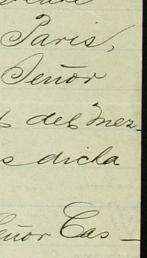 Paris,
Señor
del mez-
dicta
Señor Cas-